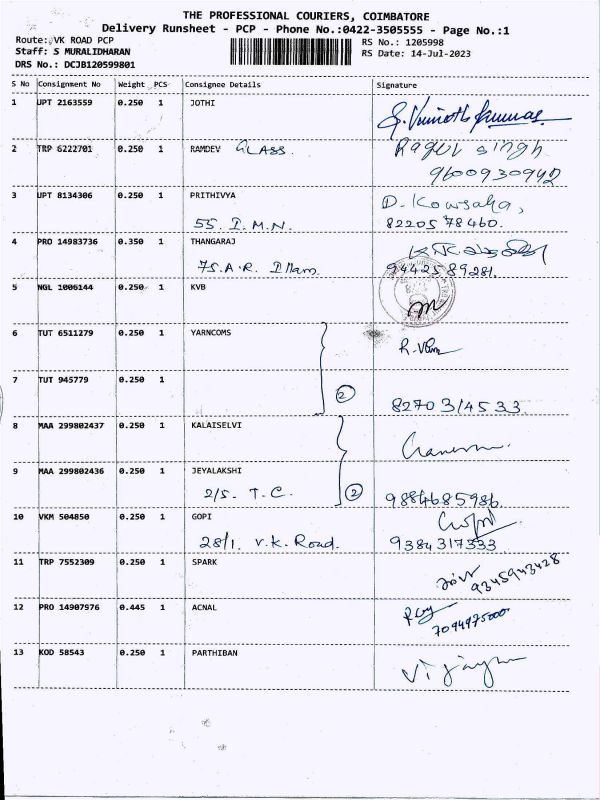 THE PROFESSIONAL COURIERS, COIMBATORE
Delivery Runsheet - PCP - Phone No.:0422-3505555 - Page No.:1
Route: VK ROAD PCP
RS No.: 1205998
Staff: S MURALIDHARAN
RS Date: 14-Jul-2023
DRS No.: DCJB120599801
S No Consignment No Weight PCS Consignee Details Signature
1 UPT 2163559 0.250 1 JOTHI
2 TRP 6222701 0.250 1 RAMDEV GLASS. Ragul singh
9600930942
3 UPT 8134306 0.250 1 PRITHIVYA D. Kowsalya,
55. I.M.N. 82205 78460.
4 PRO 14983736 0.350 1 THANGARAJ
75.A.R. Illam. 94425 89281.
5 NGL 1006144 0.250 1 KVB
6 TUT 6511279 0.250 1 YARNCOMS
7 TUT 945779 0.250 1 2 82703 14533
8 MAA 299802437 0.250 1 KALAISELVI
9 MAA 299802436 0.250 1 JEYALAKSHI
2/5. T.C. 2 9884685986.
10 VKM 504850 0.250 1 GOPI
28/1. V.K. Road. 9384317333
11 TRP 7552309 0.250 1 SPARK
9345943428
12 PRO 14907976 0.445 1 ACNAL
7094975000
13 KOD 58543 0.250 1 PARTHIBAN